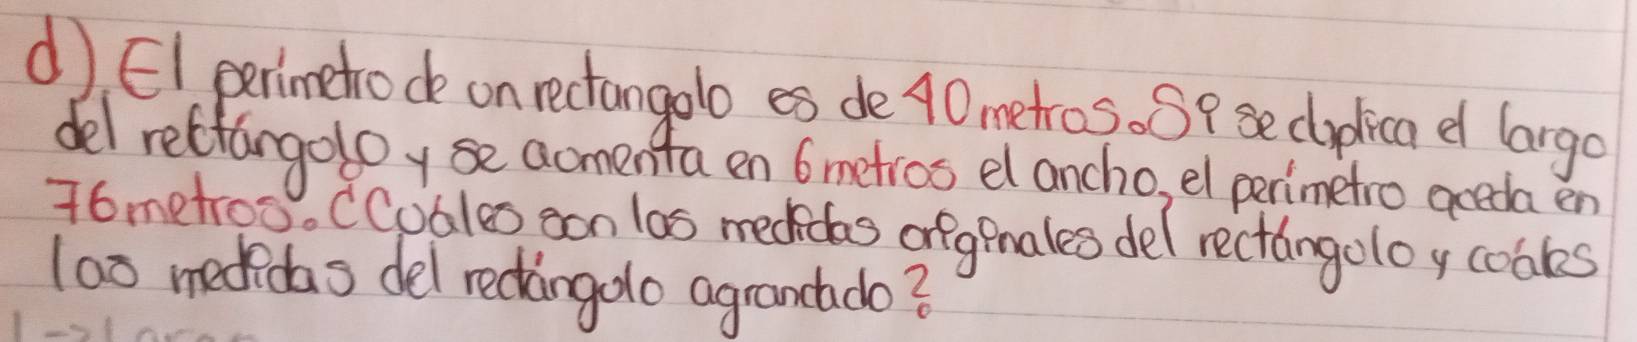 d) El perimetro de un rectangulo es de 40 metros. Si se duplica el largo
del rectángulo y se aumenta en 6 metros el ancho, el perímetro queda en
76 metros. ¿Cuáles son las medidas originales del rectángulo y cuáles
las medidas del rectángulo agrandado?